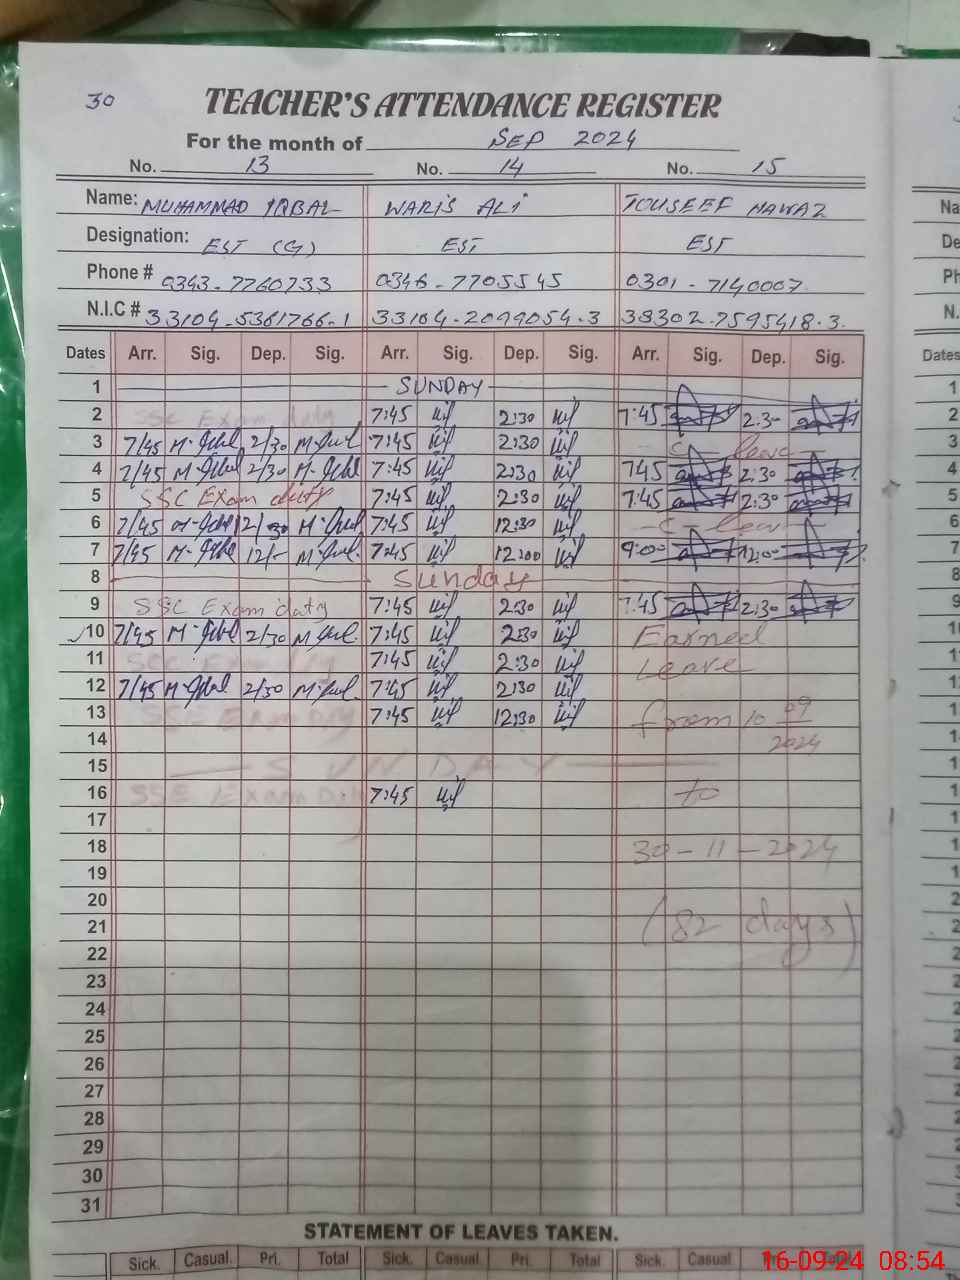 30 TEACHER'S ATTENDANCE REGISTER
For the month of SEP 2024
No. 13 No. 14 No. 15
Name: MUHAMMAD IQBAL WARIS ALI TOUSEEF NAWAZ
Designation: EST (G) EST EST
Phone # 0343-7760733 0346-7705545 0301-7140007
N.I.C # 33104-5361766-1 33104-2099054-3 38302-7595418-3
Dates Arr. Sig. Dep. Sig. Arr. Sig. Dep. Sig. Arr. Sig. Dep. Sig. Dates
1 SUNDAY
2 SSC Exam duty 7:45 2:30 7:45 2:30
3 7/45 M-Iqbal 2/30 M-Iqbal 7:45 2:30 C-leave
4 7/45 M-Iqbal 2/30 M-Iqbal 7:45 2:30 7:45 2:30
5 SSC Exam duty 7:45 2:30 7:45 2:30
6 7/45 M-Iqbal 12/30 M-Iqbal 7:45 12:30 C-leave
7 7/45 M-Iqbal 12/- M-Iqbal 7:45 12:00 9:00 12:00
8 Sunday
9 SSC Exam duty 7:45 2:30 7:45 2:30
10 7/45 M-Iqbal 2/30 M-Iqbal 7:45 2:30 Earned
11 SSC Exam duty 7:45 2:30 Leave
12 7/45 M-Iqbal 2/30 M-Iqbal 7:45 2:30
13 SSC Exam Duty 7:45 12:30 from 10 09
14 2024
15 SUNDAY
16 SSC Exam Duty 7:45 to
17
18 30-11-2024
19
20
21 (82 days)
22
23
24
25
26
27
28
29
30
31
STATEMENT OF LEAVES TAKEN.
Sick. Casual. Pri. Total Sick. Casual Pri. Total Sick. Casual Pri. Total
16-09-24 08:54